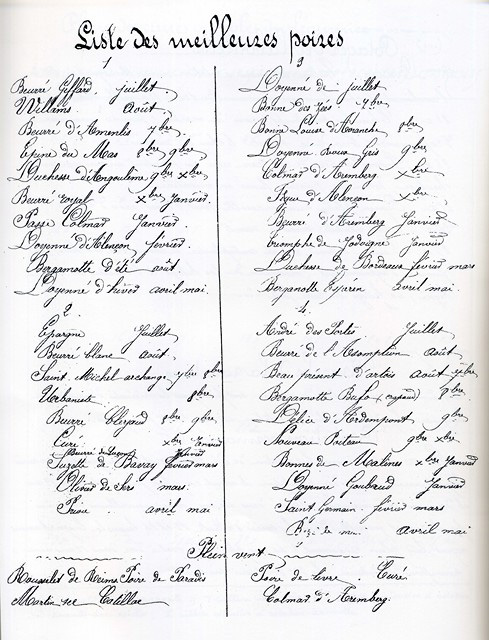 Liste des meilleures poires
1
Beurré Giffard. juillet
Williams. août.
Beurré d'Amenlis 7bre.
Epine du Mas 8bre 9bre.
Duchesse d'Angoulême 9bre Xbre
Beurré royal Xbre Janvier.
Passe Colmar Janvier.
Doyenne d'Alençon février.
Bergamotte d'été août.
Doyenné d'hiver avril mai.
2.
Epargne Juillet
Beurré blanc août.
Saint Michel archange 7bre 8bre
Urbaniste 8bre
Beurré 8bre 9bre
Curé Xbre Janvier
Beurré de Luçon Janvier
Suzette de Bavay février mars
Olivier de Sers mars.
avril mai
3
Doyenné de juillet
Bonne des Zées 7bre
Bonne Louise d'Avranche 8bre
Doyenné Gris 9bre
Colmar d'Aremberg Xbre
Figue d'Alençon Xbre
Beurré d'Aremberg Janvier
triomphe de Jodoigne janvier
Duchesse de Bordeaux février mars
Bergamotte Esperen avril mai
4.
André des Portes Juillet
Beurré de l'Assomption Août
Beau présent d'artois août 7bre
Bergamotte Bufo (crapaud) 8bre
Délice d'Ardempont 9bre
Nouveau Poiteau 9bre Xbre
Bonne de Malines Xbre Janvier
Doyenné Goubaud Janvier
Saint Germain février mars
avril mai
Plein vent
Rousselet de Reims Poire de Paradis
Martin sec Catillac
Poire de livre Curé.
Colmar d'Aremberg.